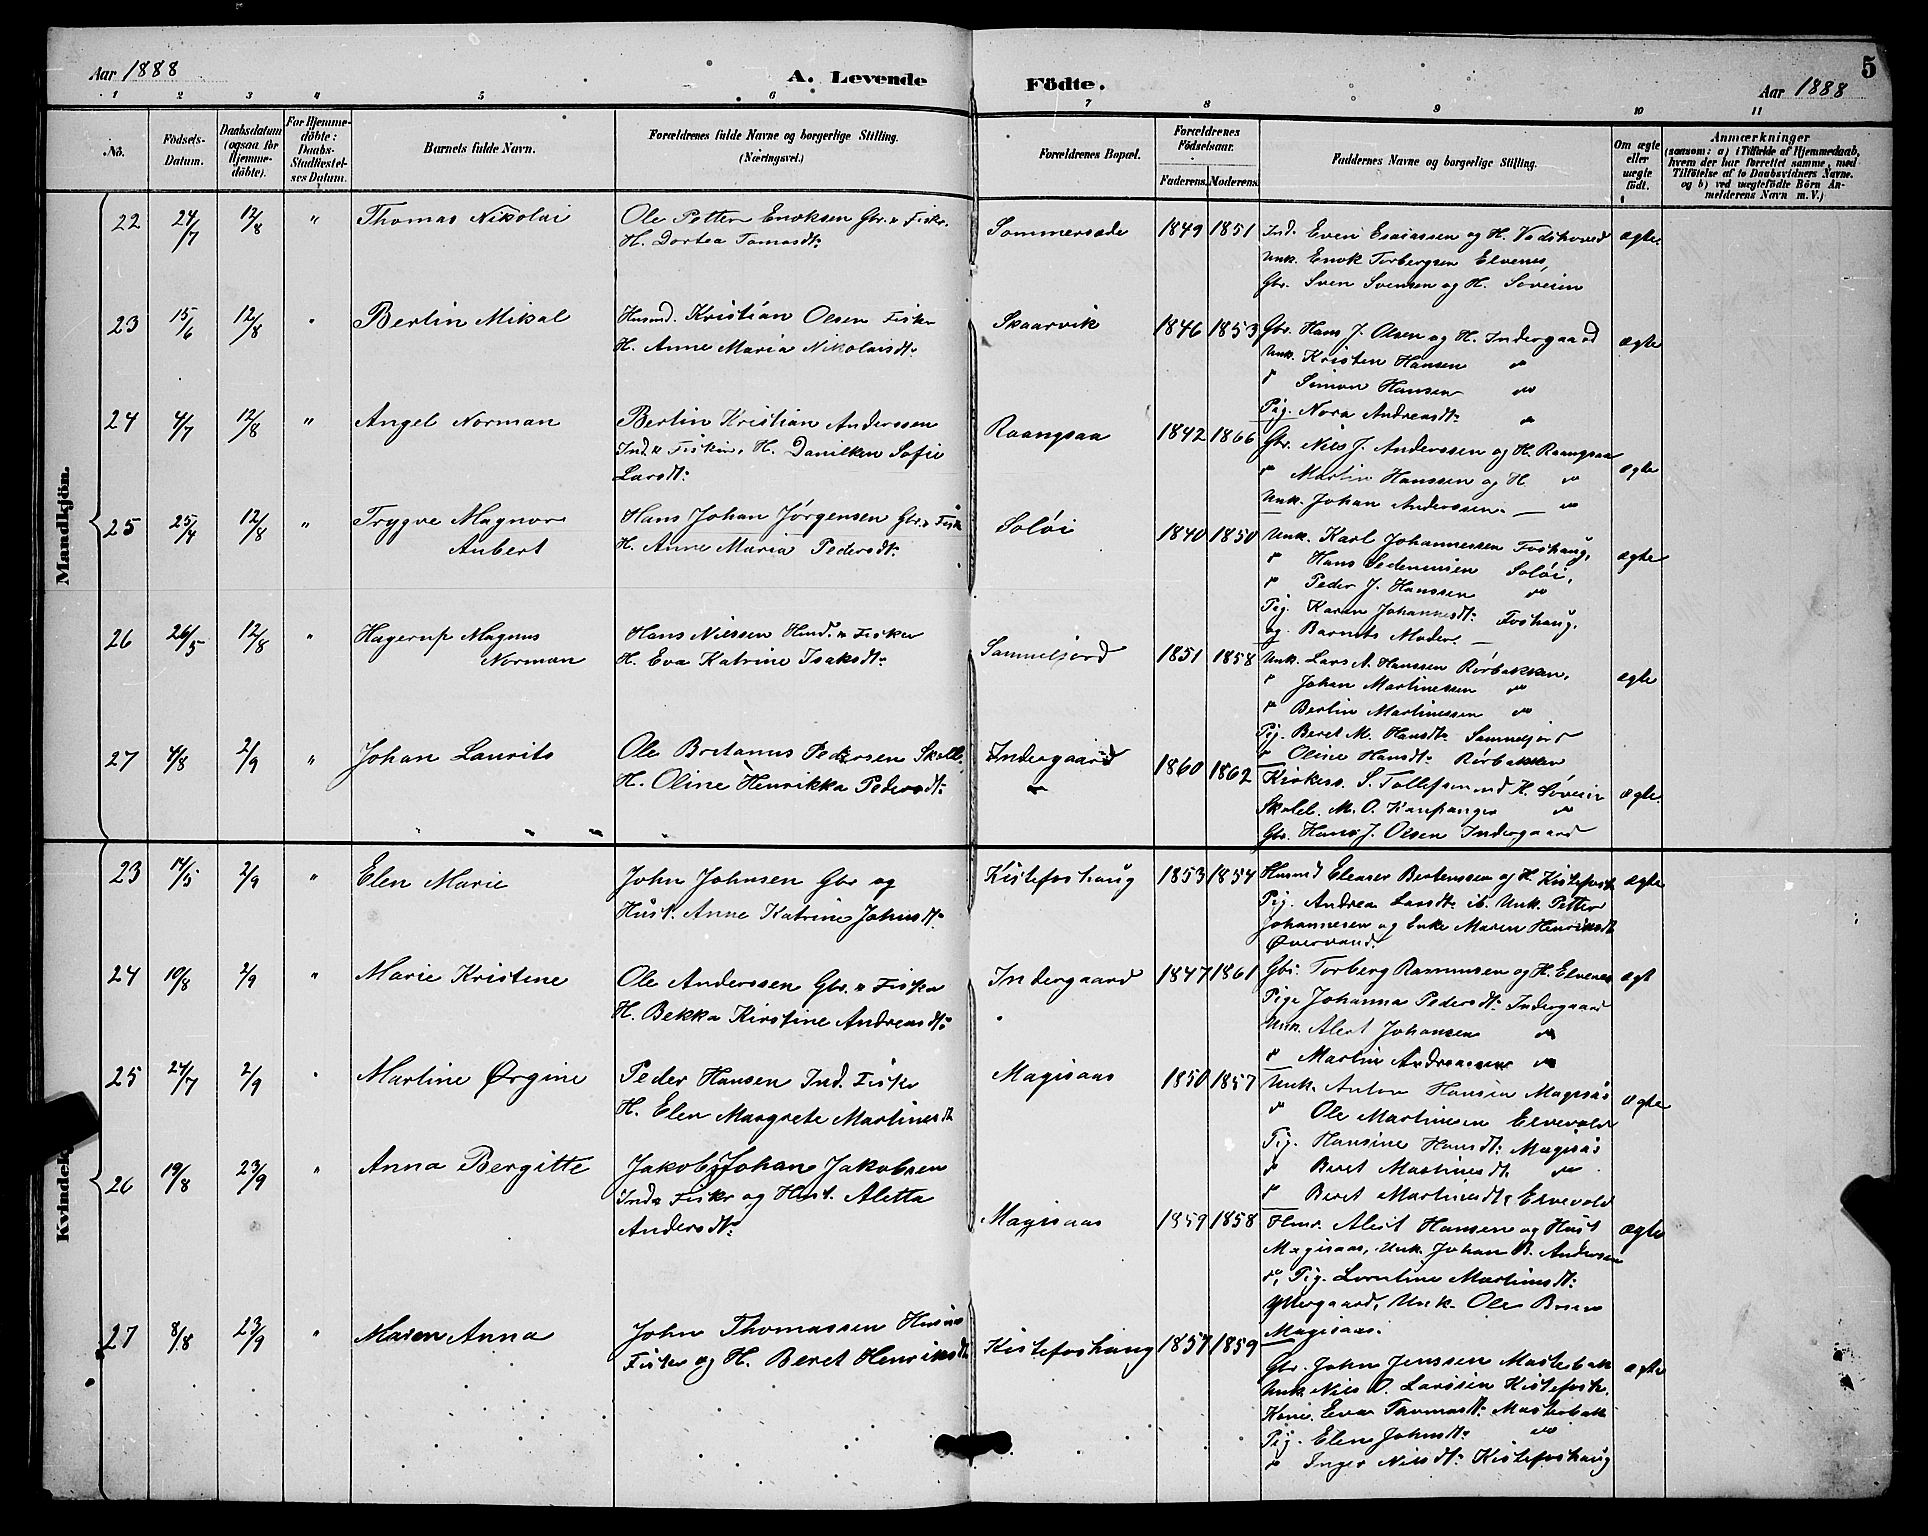 Aar 1888
A. Levende Födte.
Aar 1888
5
1 2 3 4 5 6 7 8 9 10 11
No.
Födsels-
Datum.
Daabsdatum
(ogsaa for
Hjemme-
döbte).
For Hjemme-
döbte:
Daabs-
Stadfæstel-
ses Datum.
Barnets fulde Navn.
Forældrenes fulde Navne og borgerlige Stilling.
(Næringsvei.)
Forældrenes Bopæl.
Forældrenes
Födselsaar.
Faderens. Moderens.
Faddernes Navne og borgerlige Stilling.
Om ægte
eller
uægte
födt.
Anmærkninger
(saasom: a) i Tilfælde af Hjemmedaab,
hvem der har forrettet samme, med
Tilföielse af to Daabsvidners Navne.
og b) ved uægtefödte Börn An-
melderens Navn m. V.)
Mandkjön.
22 24/7 12/8 " Thomas Nikolai
Ole Petter Enoksen Gbr. " Fisker.
H. Dortea Tomasdt:
Sommersæde 1849 1851
Ind. Even Esaiassen og H. Vedshoved
Unk. Enok Torbergsen Elvenes,
Gbr. Sven Svensen og H. Söveien
ægte
23 15/6 12/8 " Berlin Mikal
Husmd. Kristian Olsen Fisker
H. Anne Maria Nikolaisdt:
Skaarvik 1846 1853
Gbr. Hans J. Olsen og H. Indergaard
Unk. Kristen Hansen "
" Simon Hansen "
Pig. Nora Andreasdt: "
ægte
24 4/7 12/8 " Angel Norman
Berlin Kristian Anderssen
Ind. " Fisker, H. Danilken Sofie
Larsdt:
Raangsaa 1842 1866
Gbr. Niels J. Anderssen og H. Raangsaa
" Martin Hanssen og H "
Unk. Johan Anderssen. — "
ægte
25 25/4 12/8 " Trygve Magnor
Aubert
Hans Johan Jørgensen Gbr. " Fisk
H. Anne Maria Pedersdt:
Soløi 1840 1850
Unk. Karl Johannessen Foshaug,
" Hans Pedersen Soløi,
" Peder J. Hanssen "
Pig. Karen Johannesdt: Foshaug.
og. Barnets Moder. —
ægte
26 26/5 12/8 " Hagerup Magnus
Norman
Hans Nielsen Hmd. " Fisker
H. Eva Katrine Isaksdt:
Sammelfjord 1851 1858
Unk. Lars A. Hanssen Rørbakken,
" Johan Martinessen "
" Berlin Martinessen "
Pig. Beret M. Hansdt: Sammelfjord
" Oline Hansdt: Rørbakken
ægte
27 4/8 2/9 " Johan Laurits
Ole Bretanus Pedersen Skolel.
H. Oline Henrikka Pedersdt:
Indergaard 1860 1862
Kirkess. S. Tollefsen og H. Søveien
Skolel. M. O. Kaupanger "
Gbr. Hans J. Olsen Indergaard
ægte.
Kvindekj
23 14/5 2/9 " Elen Marie
John Johnsen Gbr og
Hust. Anne Katrine Johnsdt:
Kistefoshaug 1853 1854
Husmd Eleaser Bertenssen og H. Kistefosh
Pig. Andrea Larsdt: ib. Unk. Petter
Johannesen og Enke Maren Henriksdt
Øvervand.
ægte
24 10/8 2/9 " Marie Kristine
Ole Anderssen Gbr. " Fisker
H. Bekka Kirstine Andreasdt:
Indergaard 1847 1861
Gbr. Torberg Rasmusen og H. Elvenes
Pige Johanna Pedersdt: Indergaard
Unk. Alert Johansen "
" Martin Andreassen "
ægt
25 24/7 2/9 " Martine Ørgine
Peder Hansen Ind. Fisker
H. Elen Margrete Martinesdt
Magisaas 1850 1857
Unk. Anton Hansen Magisås
" Ole Martinesen Elvevold
Pig. Hansine Hansdt: Magisås
" Beret Martinesdt: "
" Beret Martinesdt: Elvevold
ægte
26 19/8 23/9 " Anna Bergitte
Jakob Johan Jakobsen
Ind " Fisker og Hust. Aletta
Andersdt:
Magisaas 1859 1858
Hmr. Alert Hansen og Hust
Magisaas, Unk. Johan B. Andersen
", Pig. Lorntine Martinsdt:
Yttergaard, Unk. Ole
Magisaas.
ægte
27 8/8 23/9 " Maren Anna
John Thomassen Husm
Fisker og H. Beret Henriksdt
Kistefoshaug 1857 1859
Gbr. John Jenssen Masterbak
Unk Niels O. Larssen Kistefosh.
Kone. Eva Thomasdt: Masterbak
Pig. Elen Johnsdt: "
" Inger Nielsdt: Kistefoshaug
ægte